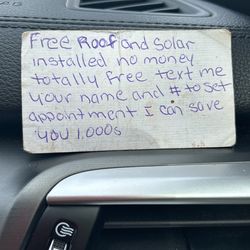 Free Roof and Solar
installed no money
totally free text me
your name and # to set
appointment I can save
you 1,000s